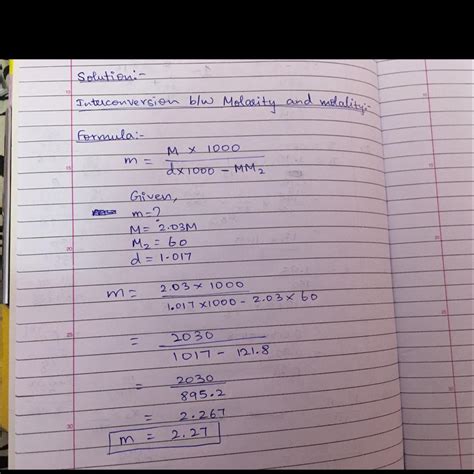 Solution:-
Interconversion b/w Molarity and molality:-
Formula:-
m = M × 1000 / d×1000 - MM₂
Given,
m=?
M= 2.03M
M₂ = 60
d = 1.017
m= 2.03 × 1000 / 1.017×1000 - 2.03 × 60
= 2030 / 1017 - 121.8
= 2030 / 895.2
= 2.267
m = 2.27